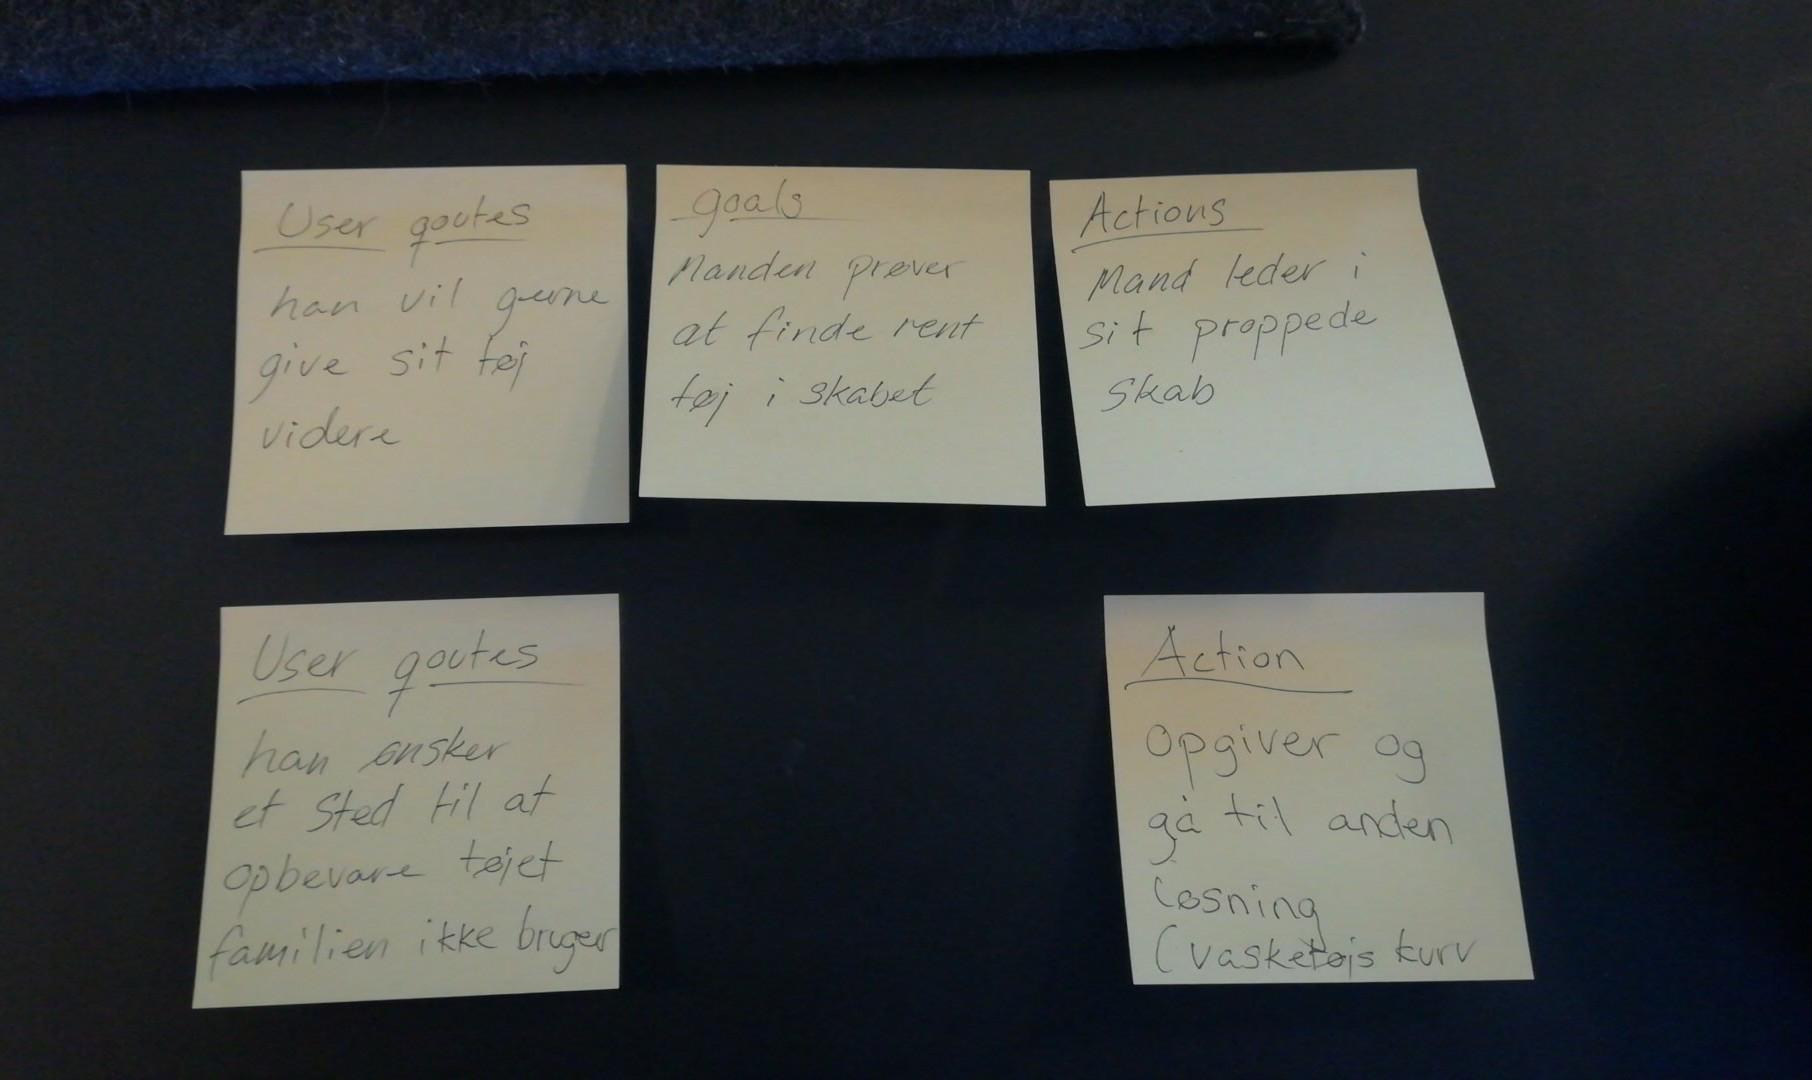 User qoutes
han vil gerne
give sit tøj
videre
goals
Manden prøver
at finde rent
tøj i skabet
Actions
Mand leder i
sit proppede
skab
User qoutes
han ønsker
et sted til at
opbevare tøjet
familien ikke bruger
Action
Opgiver og
gå til anden
løsning
(vasketøjs kurv